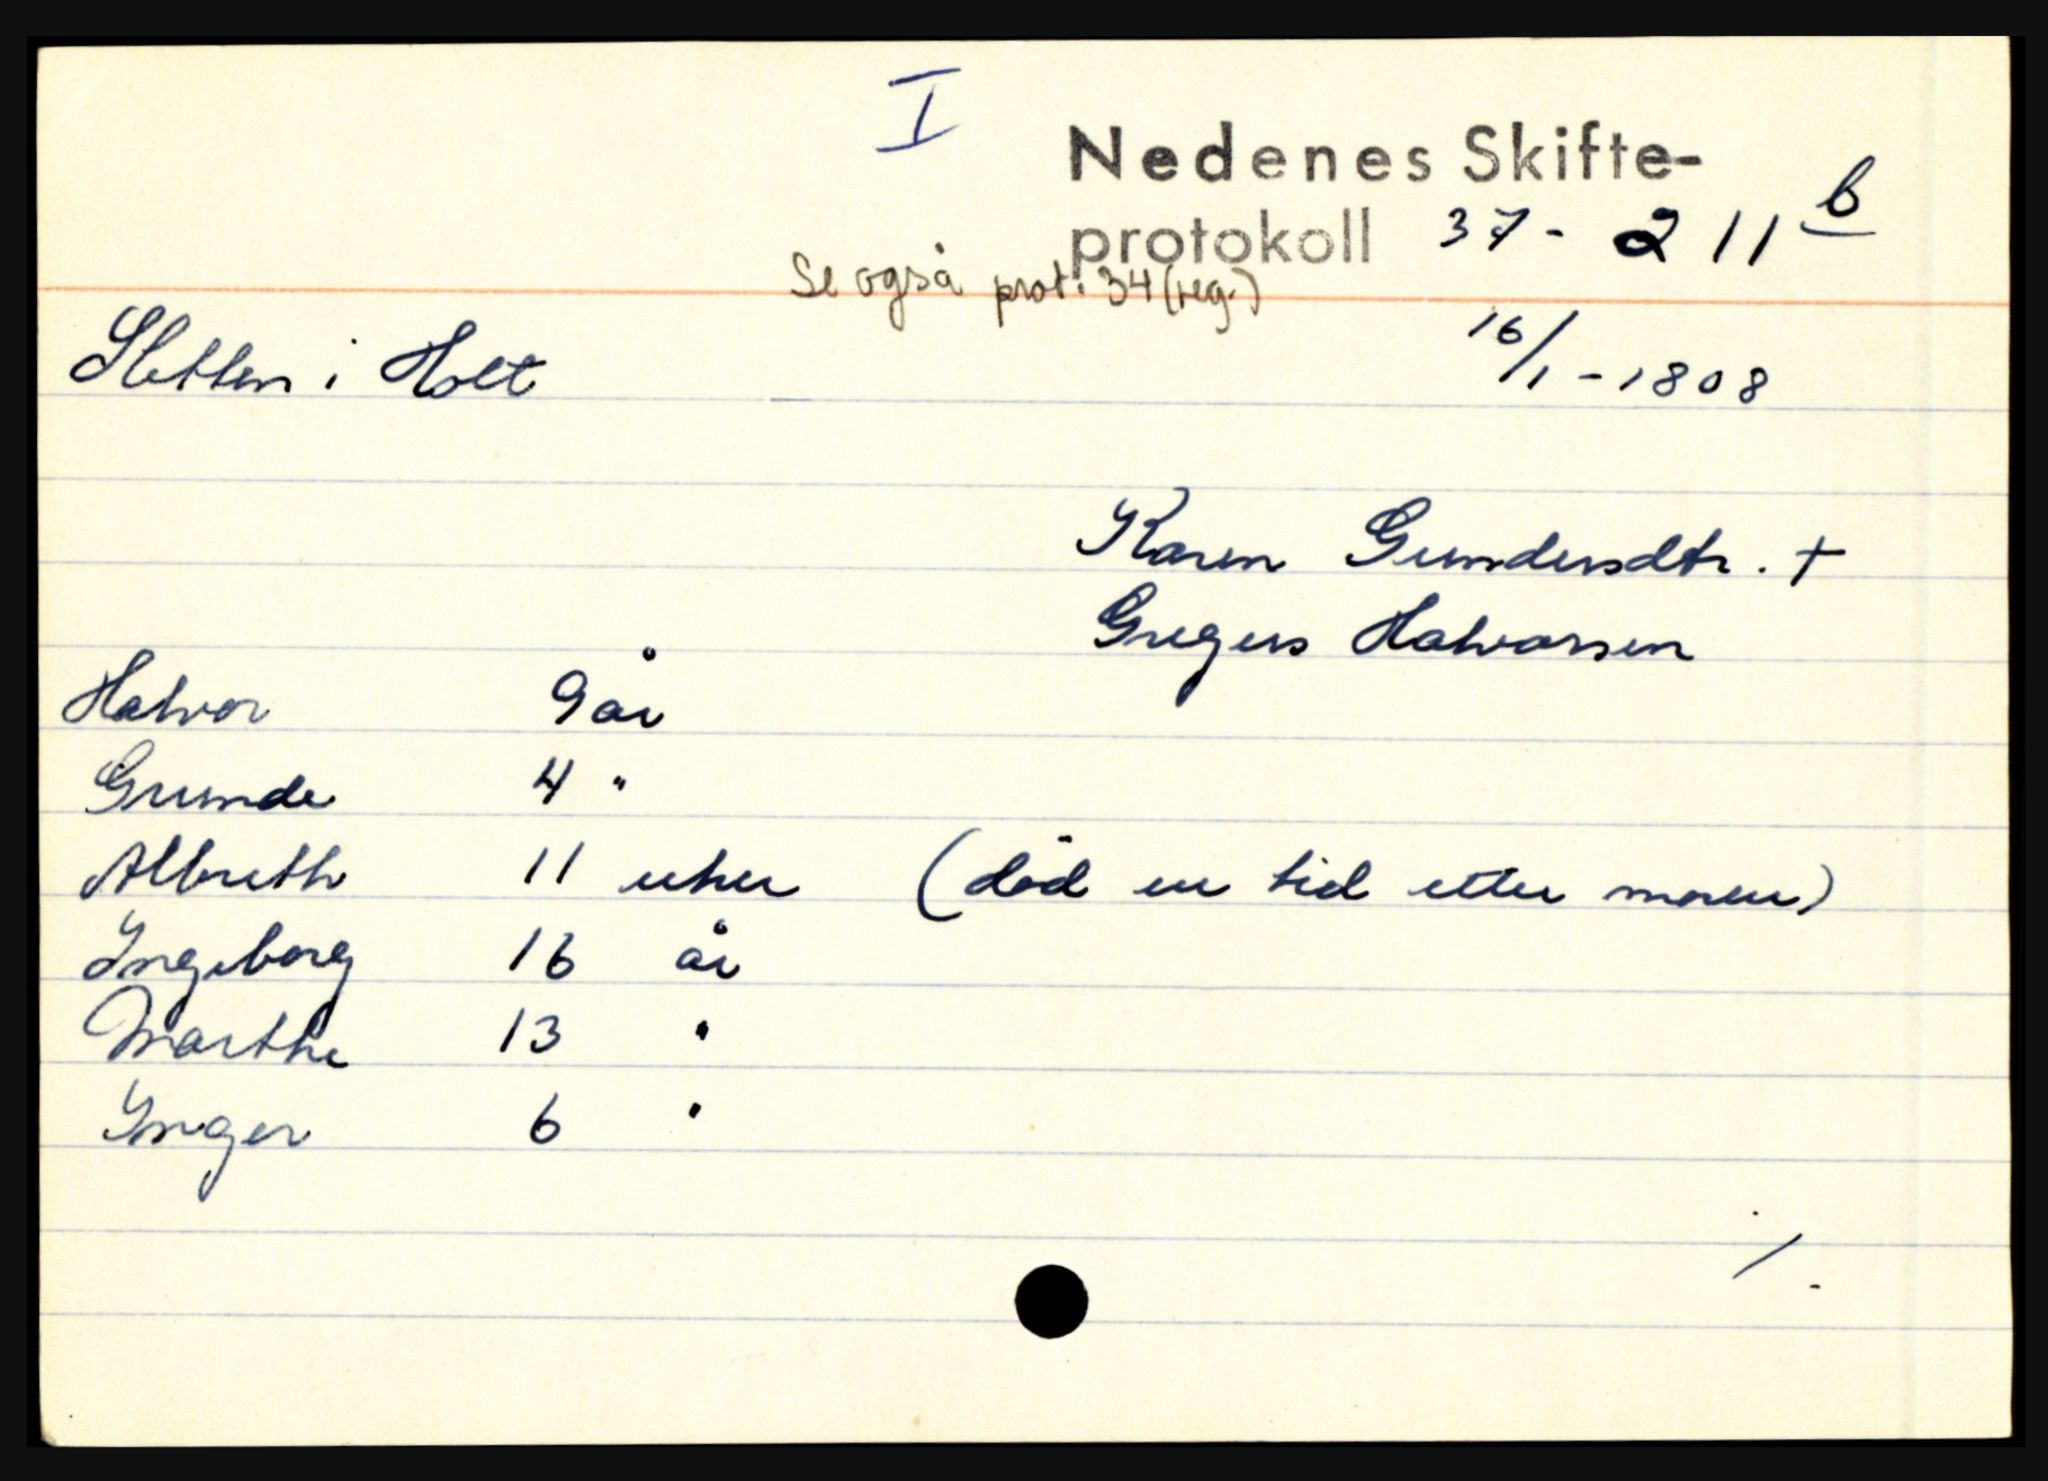 I
Nedenes Skifte-
protokoll 37- 211 b
Se også prot. 34 (reg.)
Sletten i Holt 16/1 - 1808
Karen Gundersdtr. +
Gregers Halvorsen
Halvor 9 år
Gunde 4 "
Albreth 11 uker (død en tid etter moren)
Ingeborg 16 år
Marthe 13 "
Inger 6 "
./.